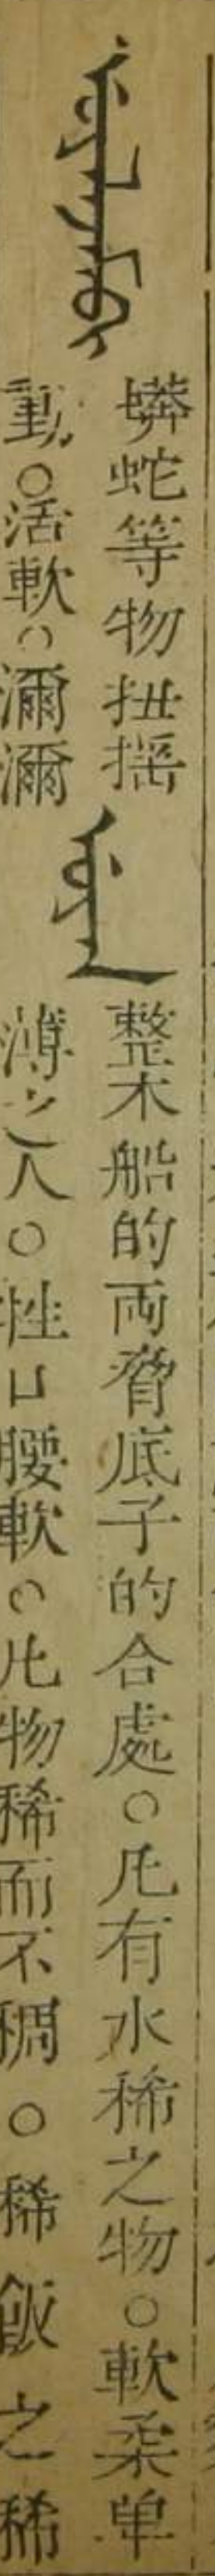 ᡠᠶᠠᠯᠵᠠᠮᠪᡳ
蟒蛇等物扭搖
動。活軟。瀰瀰
ᡠᠶᠠᠨ
整木船的両脅底子的合處。凡有水稀之物。軟柔单
薄之人。牲口腰軟。凡物稀而不稠。稀飯之稀